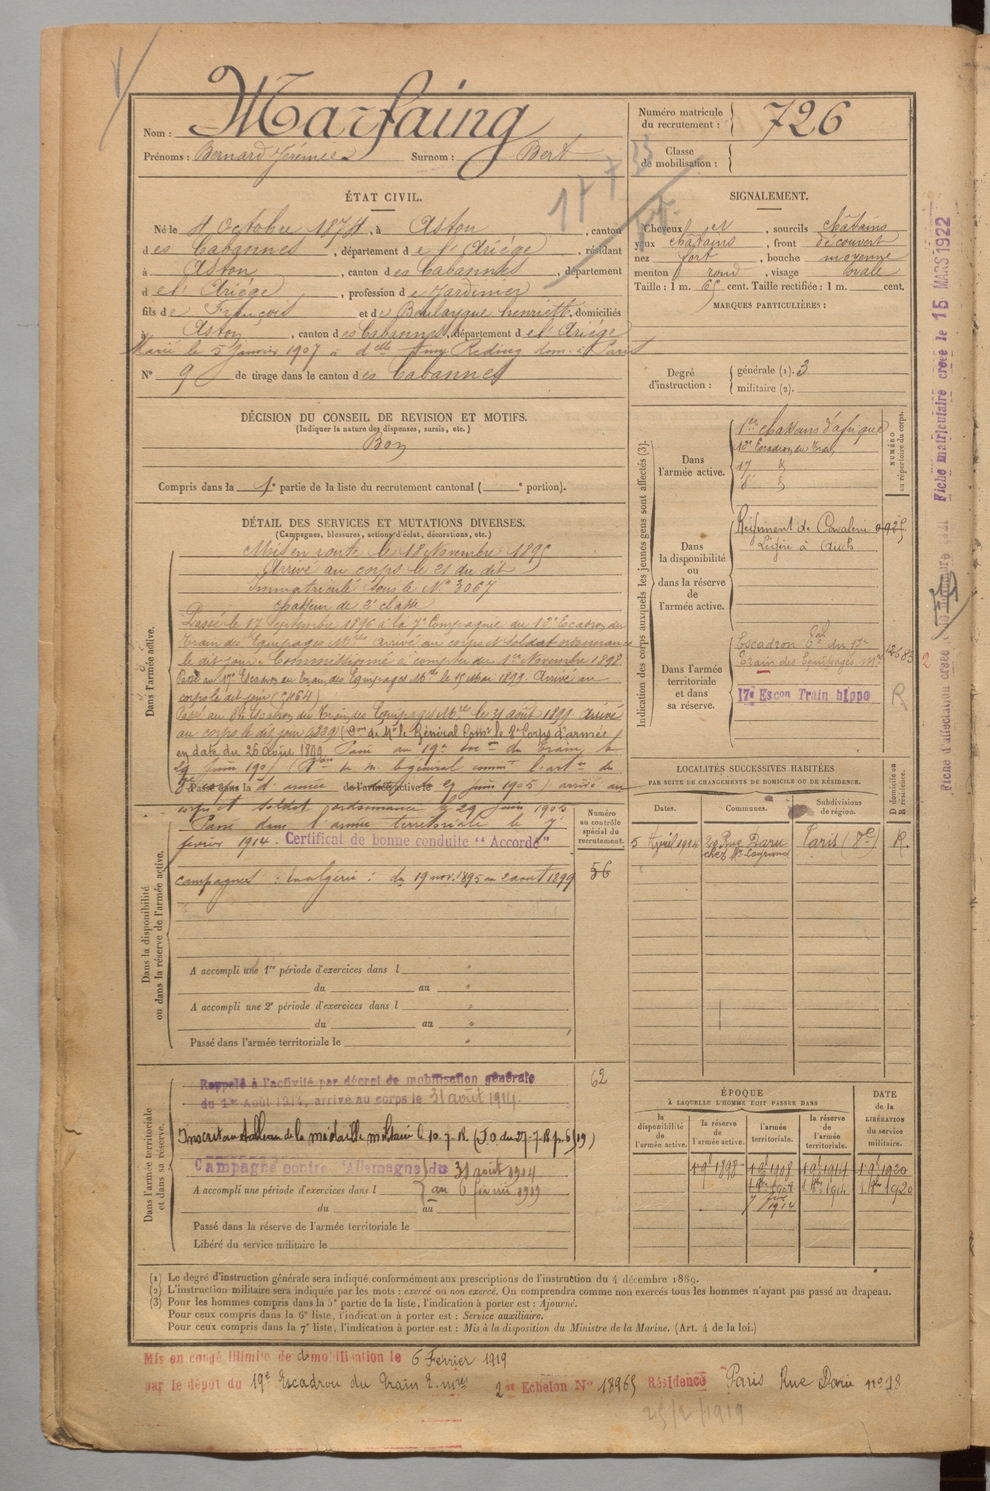 Nom : Marfaing
Prénoms : Bernard Jérémie Surnom : Bert
Numéro matricule du recrutement : 726
Classe de mobilisation :
ÉTAT CIVIL.
Né le 4 Octobre 1874, à Aston, canton
des Cabannes, département de l'Ariège, résidant
à Aston, canton des Cabannes, département
de l'Ariège, profession de Jardinier
fils de François et de Boulaygue henriette, domiciliés
à Aston, canton des Cabannes, département de l'Ariège
Marié le 5 Janvier 1907 à delle Reding dom. à Paris
N° 9 de tirage dans le canton des Cabannes
SIGNALEMENT.
Cheveux et, sourcils châtains
yeux châtains, front découvert
nez fort, bouche moyenne
menton rond, visage ovale
Taille : 1 m. 65 cent. Taille rectifiée : 1 m. cent.
MARQUES PARTICULIÈRES :
Degré d'instruction : générale (1). 3
militaire (2).
DÉCISION DU CONSEIL DE REVISION ET MOTIFS.
(Indiquer la nature des dispenses, sursis, etc.)
Bon
Compris dans la 1e partie de la liste du recrutement cantonal ( e portion).
DÉTAIL DES SERVICES ET MUTATIONS DIVERSES.
(Campagnes, blessures, actions d'éclat, décorations, etc.)
Dans l'armée active.
Mis en route le 18 Novembre 1895
Arrivé au corps le 21 du dit
Immatriculé sous le N° 3067
chasseur de 2e classe
Passé le 17 Septembre 1896 à la 7e Compagnie du 12e Escadron du
Train des Equipages Mres arrivé au corps et soldat ordonnance
le dit jour. Commissionné à compter du 1er Novembre 1898
Passé au 17e Escadron du Train des Equipages Mres le 15 Mai 1899. Arrivé au
corps le dit jour
Passé au 8e Escadron du Train des Equipages Mres le 31 août 1899 arrivé
au corps le dit jour (Don de Mr le Général Comt le 8e Corps d'armée
en date du 26 Août 1899. Passé au 19e du train, le
29 juin 190
Passé dans la d armée de l'armée active le 29 juin 1905 arrivé au
corps et soldat ordonnance le 29 juin 1905
Dans la disponibilité ou dans la réserve de l'armée active.
Passé dans l'armée territoriale le 7
février 1914. Certificat de bonne conduite "Accordé"
campagnes : En algérie : du 19 nov. 1895 au 2 août 1899
Numéro au contrôle spécial du recrutement.
56
A accompli une 1re période d'exercices dans l
du au
A accompli une 2e période d'exercices dans l
du au
Passé dans l'armée territoriale le
Dans l'armée territoriale et dans sa réserve.
Rappelé à l'activité par décret de mobilisation générale
du 1er Août 1914, arrivé au corps le 31 août 1914.
62
Inscrit au tableau de la médaille militaire le 10-7-18 (J.O du 27-7-18 p. 6519)
Campagne contre l'Allemagne du 31 août 1914
A accompli une période d'exercices dans l au 6 février 1919
du au
Passé dans la réserve de l'armée territoriale le
Libéré du service militaire le
Indication des corps auxquels les jeunes gens sont affectés (3).
NUMÉRO au répertoire du corps.
Dans l'armée active.
1er chasseurs d'afrique
12e Escadron du Train
17 d
8 d
Dans la disponibilité ou dans la réserve de l'armée active.
Régiment de Cavalerie
Légère à Auch
Dans l'armée territoriale et dans sa réserve.
Escadron Tal du 17e
Train des Equipages Mres
17e Escon Train hippo
R
LOCALITÉS SUCCESSIVES HABITÉES
PAR SUITE DE CHANGEMENTS DE DOMICILE OU DE RÉSIDENCE.
Dates. Communes. Subdivisions de région. D domicile ou R résidence.
5 Avril 190 Rue Daru Paris (8e) R.
chez Mr
ÉPOQUE
À LAQUELLE L'HOMME DOIT PASSER DANS
la disponibilité de l'armée active. la réserve de l'armée active. l'armée territoriale. la réserve de l'armée territoriale. DATE de la LIBÉRATION du service militaire.
1 9e 1898 1 9e 1908 1 9e 1914 1 9e 1920
1 9bre 1914 1 9bre 1920
7 fév 1914
(1) Le degré d'instruction générale sera indiqué conformément aux prescriptions de l'instruction du 4 décembre 1889.
(2) L'instruction militaire sera indiquée par les mots : exercé ou non exercé. On comprendra comme non exercés tous les hommes n'ayant pas passé au drapeau.
(3) Pour les hommes compris dans la 5e partie de la liste, l'indication à porter est : Ajourné.
Pour ceux compris dans la 6e liste, l'indication à porter est : Service auxiliaire.
Pour ceux compris dans la 7e liste, l'indication à porter est : Mis à la disposition du Ministre de la Marine. (Art. 4 de la loi.)
Mis en congé illimité de démobilisation le 6 Février 1919
par le dépôt du 19e Escadron du Train E. mres 2me Echelon N° 18965 Résidence Paris Rue Daru n° 18
25/2/1919
Fiche matriculaire créée le 15 MARS 1922
Fiche d'affectation créée le